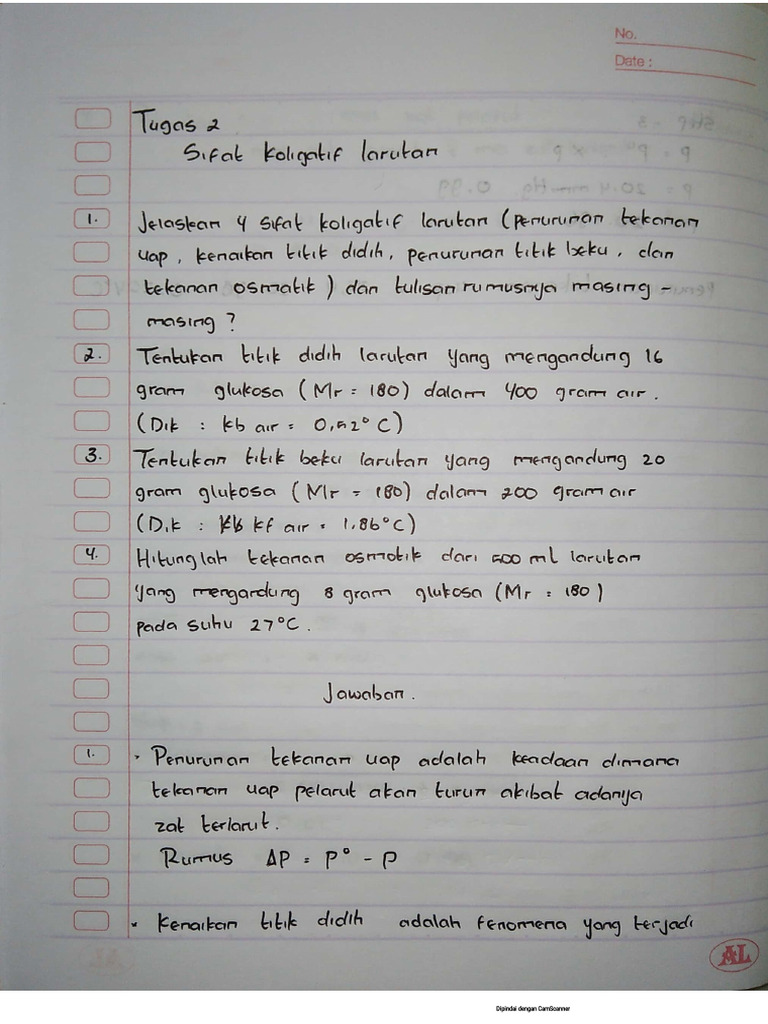 No.
Date :
Tugas 2
Sifat koligatif larutan
1. Jelaskan 4 sifat koligatif larutan (penurunan tekanan
uap, kenaikan titik didih, penurunan titik beku, dan
tekanan osmatik) dan tulisan rumusnya masing -
masing ?
2. Tentukan titik didih larutan yang mengandung 16
gram glukosa (Mr = 180) dalam 400 gram air.
(Dik : kb air = 0,52°C)
3. Tentukan titik beku larutan yang mengandung 20
gram glukosa (Mr = 180) dalam 200 gram air
(Dik : kf air = 1,86°C)
4. Hitunglah tekanan osmotik dari 500 ml larutan
yang mengandung 8 gram glukosa (Mr = 180)
pada suhu 27°C.
Jawaban.
1. • Penurunan tekanan uap adalah keadaan dimana
tekanan uap pelarut akan turun akibat adanya
zat terlarut.
Rumus ΔP = P° - P
• Kenaikan titik didih adalah fenomena yang terjadi
AL
Dipindai dengan CamScanner